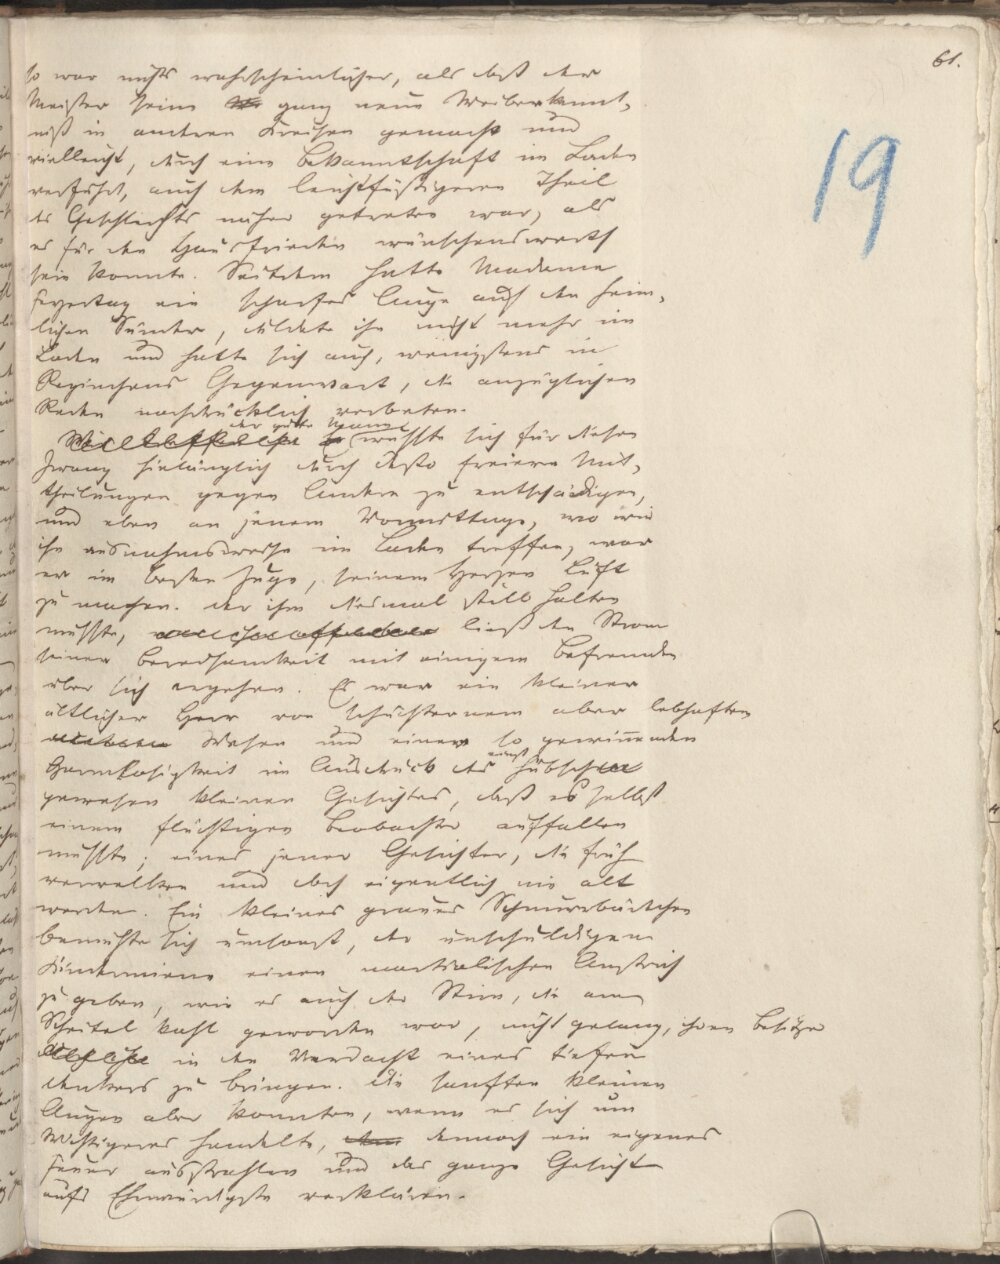 61.
19
so war nichts wahrscheinlicher, als daß der
Meister seine ganz neue Weiberkennt-
niß in anderen Kreisen gemacht und
vielleicht, durch eine Bekanntschaft im Laden
verführt, auch dem leichtfüßigeren Theil
des Geschlechts näher getreten war, als
es für den Hausfrieden wünschenswerth
sein konnte. Seitdem hatte Madame
Feyertag ein scharfes Auge auf den heim-
lichen Sünder, duldete ihn nicht mehr im
Laden und hatte sich auch, wenigstens in
Reginchens Gegenwart, die anzüglichen
Reden nachdrücklich verbeten.
der gute Mann wußte sich für diesen
Zwang hinlänglich durch desto freiere Mit-
theilungen gegen Andere zu entschädigen,
und eben an jenem Vormittage, wo wir
ihn ausnahmsweise im Laden treffen, war
er im besten Zuge, seinem Herzen Luft
zu machen. Der ihm diesmal still halten
mußte, ließ den Strom
seiner Beredsamkeit mit einigem Befremden
über sich ergehen. Es war ein kleiner
ältlicher Herr von schüchternem aber lebhaften
Wesen und einer so gewinnenden
Harmlosigkeit im Ausdruck des einst hübsch
gewesen kleinen Gesichtes, daß es selbst
einem flüchtigen Beobachter auffallen
mußte; eines jener Gesichter, die früh
verwelken und doch eigentlich nie alt
werden. Ein kleines graues Schnurrbärtchen
bemühte sich umsonst, der unschuldigen
Kindermiene einen martialischen Anstrich
zu geben, wie es auch der Stirn, die am
Scheitel kahl geworden war, nicht gelang, ihren Besitzer
in den Verdacht eines tiefen
Denkers zu bringen. Die sanften kleinen
Augen aber konnten, wenn es sich um
Wichtigeres handelte, dennoch ein eigenes
Feuer ausstrahlen und das ganze Gesicht
aufs Ehrwürdigste verklären.